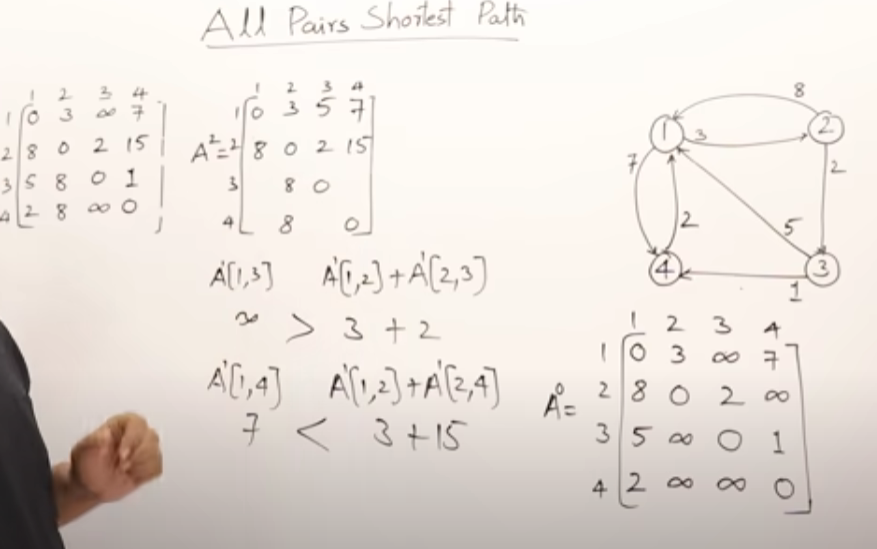 All Pairs Shortest Path
1 2 3 4
1 0 3 ∞ 7
2 8 0 2 15
3 5 8 0 1
4 2 8 ∞ 0
1 2 3 4
1 0 3 5 7
A²= 2 8 0 2 15
3 8 0
4 8 0
A¹[1,3] A¹[1,2]+A¹[2,3]
∞ > 3 + 2
A¹[1,4] A¹[1,2]+A¹[2,4]
7 < 3+15
8
1 3 2
7 2
2 5
4 3
1
1 2 3 4
1 0 3 ∞ 7
A⁰= 2 8 0 2 ∞
3 5 ∞ 0 1
4 2 ∞ ∞ 0